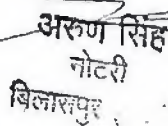 अरुण सिंह
नोटरी
बिलासपुर